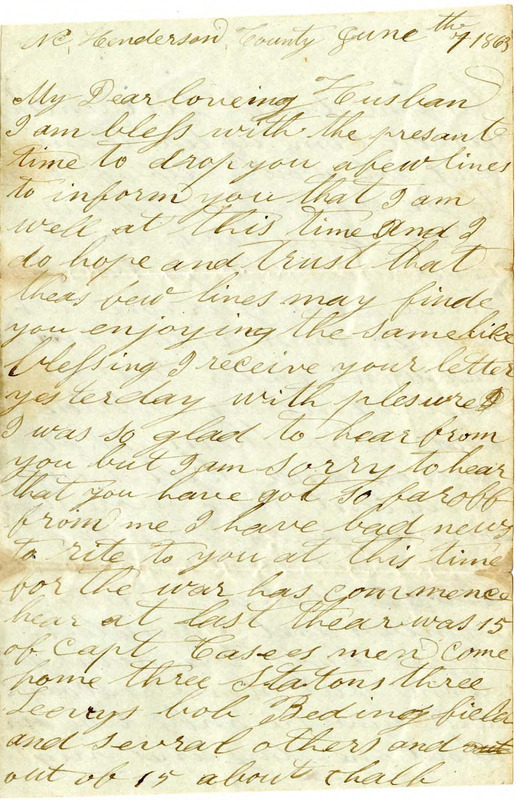 NC Henderson County June the 7 1863
My Dear loveing Husban
I am bless with the presant
time to drop you a few lines
to inform you that I am
well at this time And I
do hope and trust that
theas few lines may finde
you enjoying the same like
blessing I receive your letter
yesterday with plesure
I was so glad to hear from
you but I am sorry to hear
that you have got so far off
from me I have bad news
to rite to you at this time
for the war has commence
hear at last thear was 15
of Capt Casees men come
home three Statons three
Leevys bob Bedingfield
and several others and
out of 15 about half